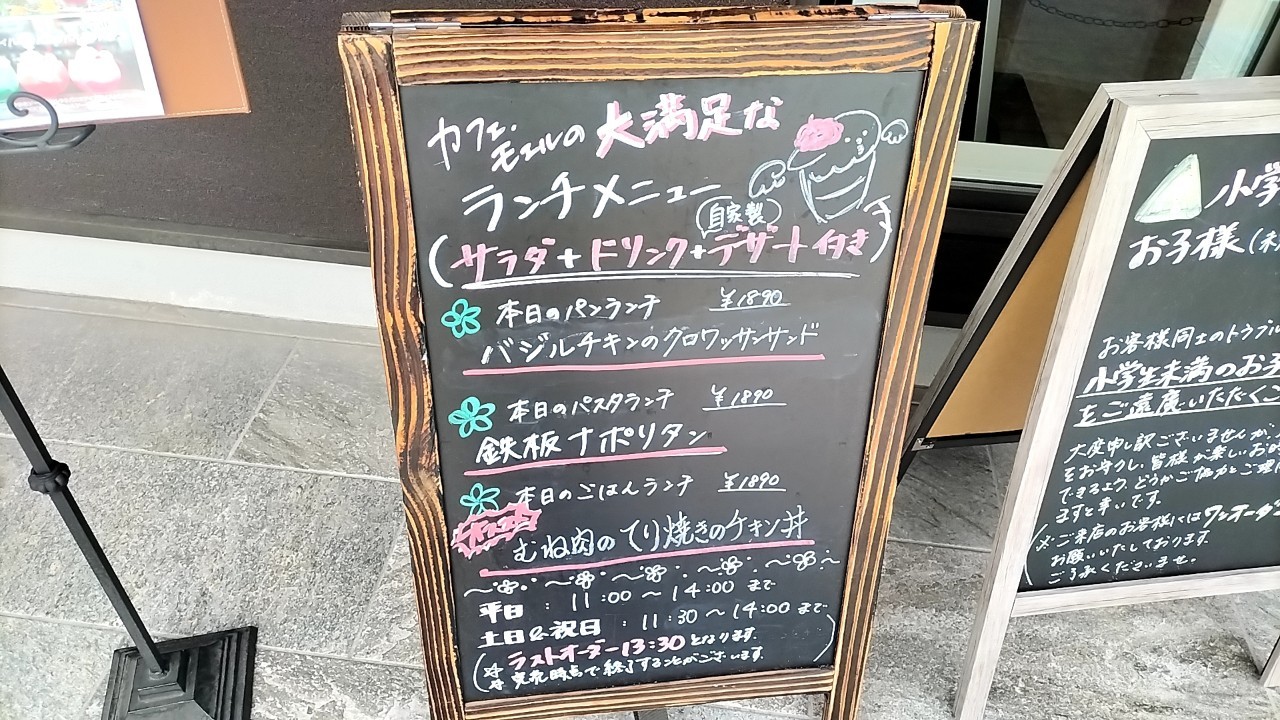 カフェ・モエルの大満足な
ランチメニュー
(サラダ+ドリンク+自家製デザート付き)
本日のパンランチ ¥1890
バジルチキンのクロワッサンサンド
本日のパスタランチ ¥1890
鉄板ナポリタン
本日のごはんランチ ¥1890
むね肉のてり焼きのチキン丼
平日:11:00~14:00まで
土日&祝日:11:30~14:00まで
(ラストオーダー13:30となります。
完売時点で終了することがございます。)
小学
お子様(未
お客様同士のトラブル
小学生未満のお子
をご遠慮いただくこ
大変申し訳ございませんが、
をお守りし、皆様が楽しいお時
できるよう、どうかご協力とご理
ますと幸いです。
(※ご来店のお客様にはワンオーダ
お願いいたしております。
ご了承くださいませ。